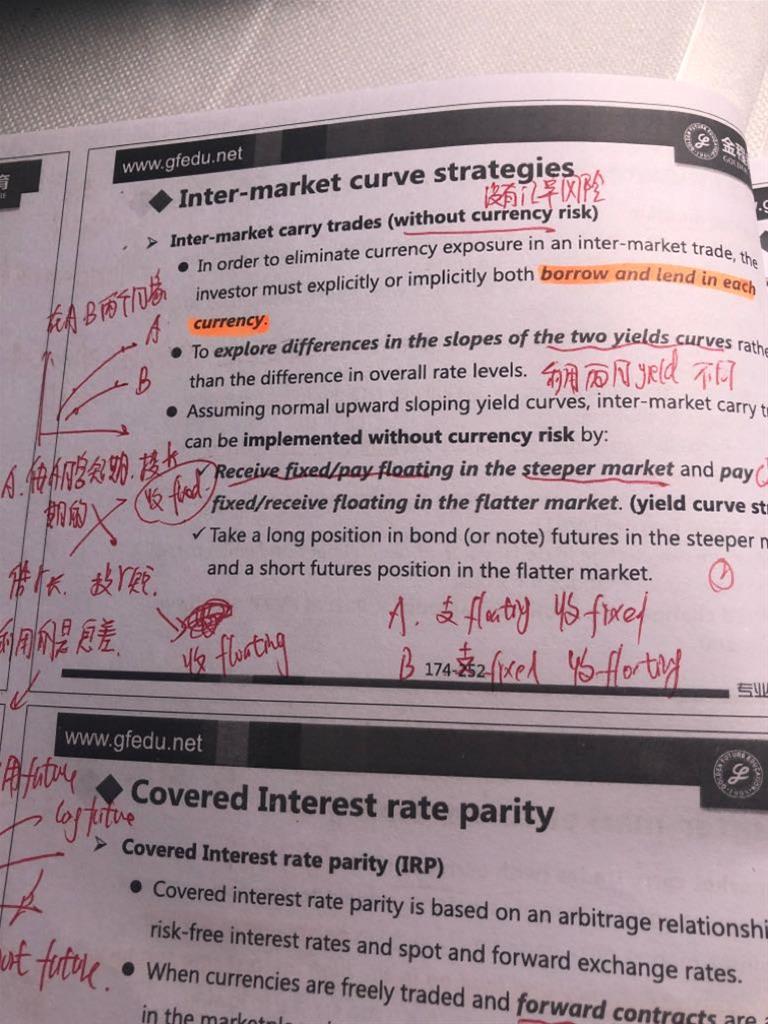 育
www.gfedu.net
金程
◆ Inter-market curve strategies
没有汇率风险
➢ Inter-market carry trades (without currency risk)
● In order to eliminate currency exposure in an inter-market trade, the
investor must explicitly or implicitly both borrow and lend in each
currency.
在A B两个国家
A
B
● To explore differences in the slopes of the two yields curves rathe
than the difference in overall rate levels.
利用两国yield 不同
● Assuming normal upward sloping yield curves, inter-market carry t
can be implemented without currency risk by:
✓ Receive fixed/pay floating in the steeper market and pay
fixed/receive floating in the flatter market. (yield curve st
收 fixed
期的
✓ Take a long position in bond (or note) futures in the steeper m
and a short futures position in the flatter market.
借 长 投 短
利用的是息差
收 floating
A. 支 floating 收 fixed
B 支 fixed 收 floating
174-252
专业
www.gfedu.net
用 future
◆ Covered Interest rate parity
➢ Covered Interest rate parity (IRP)
● Covered interest rate parity is based on an arbitrage relationshi
risk-free interest rates and spot and forward exchange rates.
future.
● When currencies are freely traded and forward contracts are a
in the marketpl